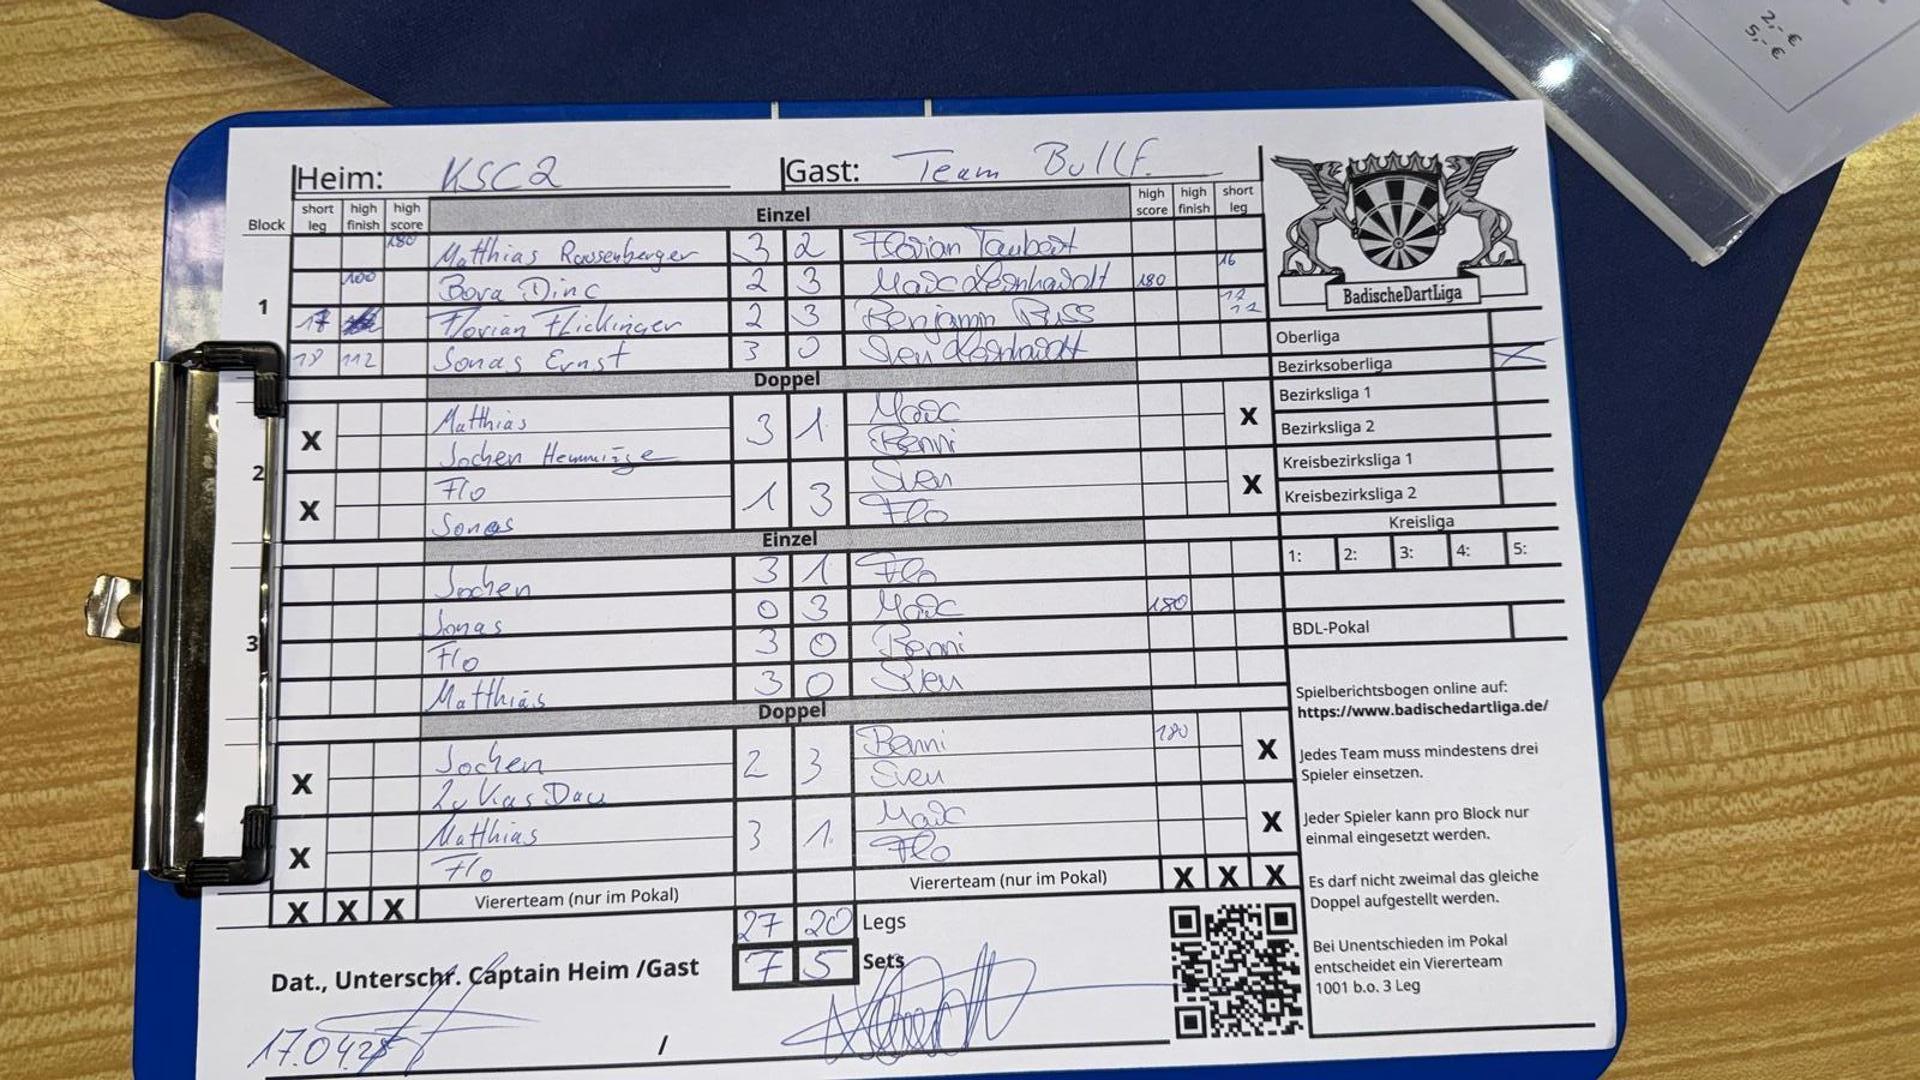 2,- €
5,- €
Heim: KSC2 Gast: Team Bullf.
Block short leg high finish high score Einzel high score high finish short leg
180 Matthias Rausenberger 3 2 Florian Taubert
100 Bora Dinc 2 3 Marc Leonhardt 180 16
1 17 Florian Flickinger 2 3 Benjamin Buss
18 112 Jonas Ernst 3 0 Sven Leonhardt
Doppel
Matthias 3 1 Marc
X Jochen Benni X
2 Flo 1 3 Sven
X Jonas Flo X
Einzel
Jochen 3 1 Flo
Jonas 0 3 Marc 180
3 Flo 3 0 Benni
Matthias 3 0 Sven
Doppel
Jochen 2 3 Benni 180
X Lukas Dau Sven X
Matthias 3 1 Marc
X Flo Flo X
X X X Viererteam (nur im Pokal) Viererteam (nur im Pokal) X X X
27 20 Legs
7 5 Sets
Dat., Unterschr. Captain Heim /Gast
17.04.25 /
BadischeDartLiga
Oberliga
Bezirksoberliga X
Bezirksliga 1
Bezirksliga 2
Kreisbezirksliga 1
Kreisbezirksliga 2
Kreisliga
1: 2: 3: 4: 5:
BDL-Pokal
Spielberichtsbogen online auf:
https://www.badischedartliga.de/
Jedes Team muss mindestens drei
Spieler einsetzen.
Jeder Spieler kann pro Block nur
einmal eingesetzt werden.
Es darf nicht zweimal das gleiche
Doppel aufgestellt werden.
Bei Unentschieden im Pokal
entscheidet ein Viererteam
1001 b.o. 3 Leg